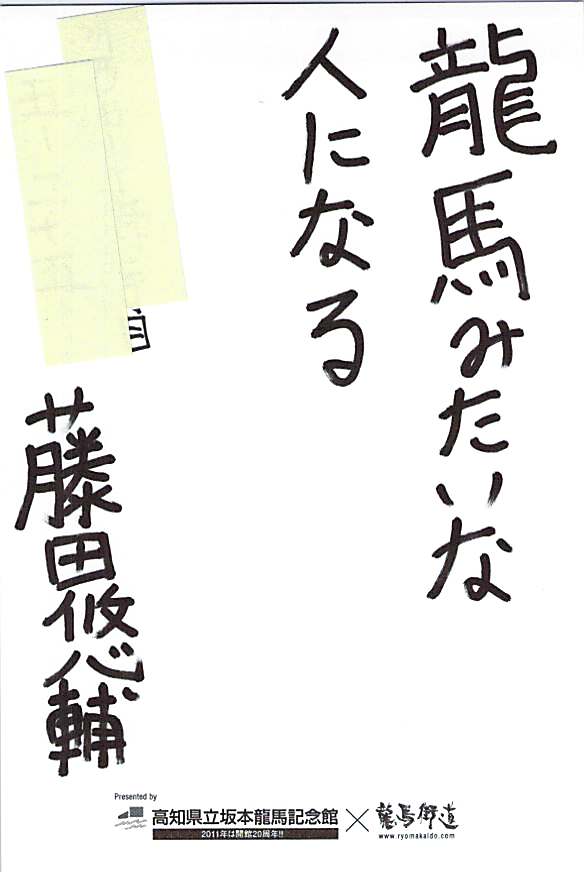 龍馬みたいな
人になる
藤田悠輔
Presented by
高知県立坂本龍馬記念館×龍馬街道
2011年は開館20周年!!
www.ryomakaido.com